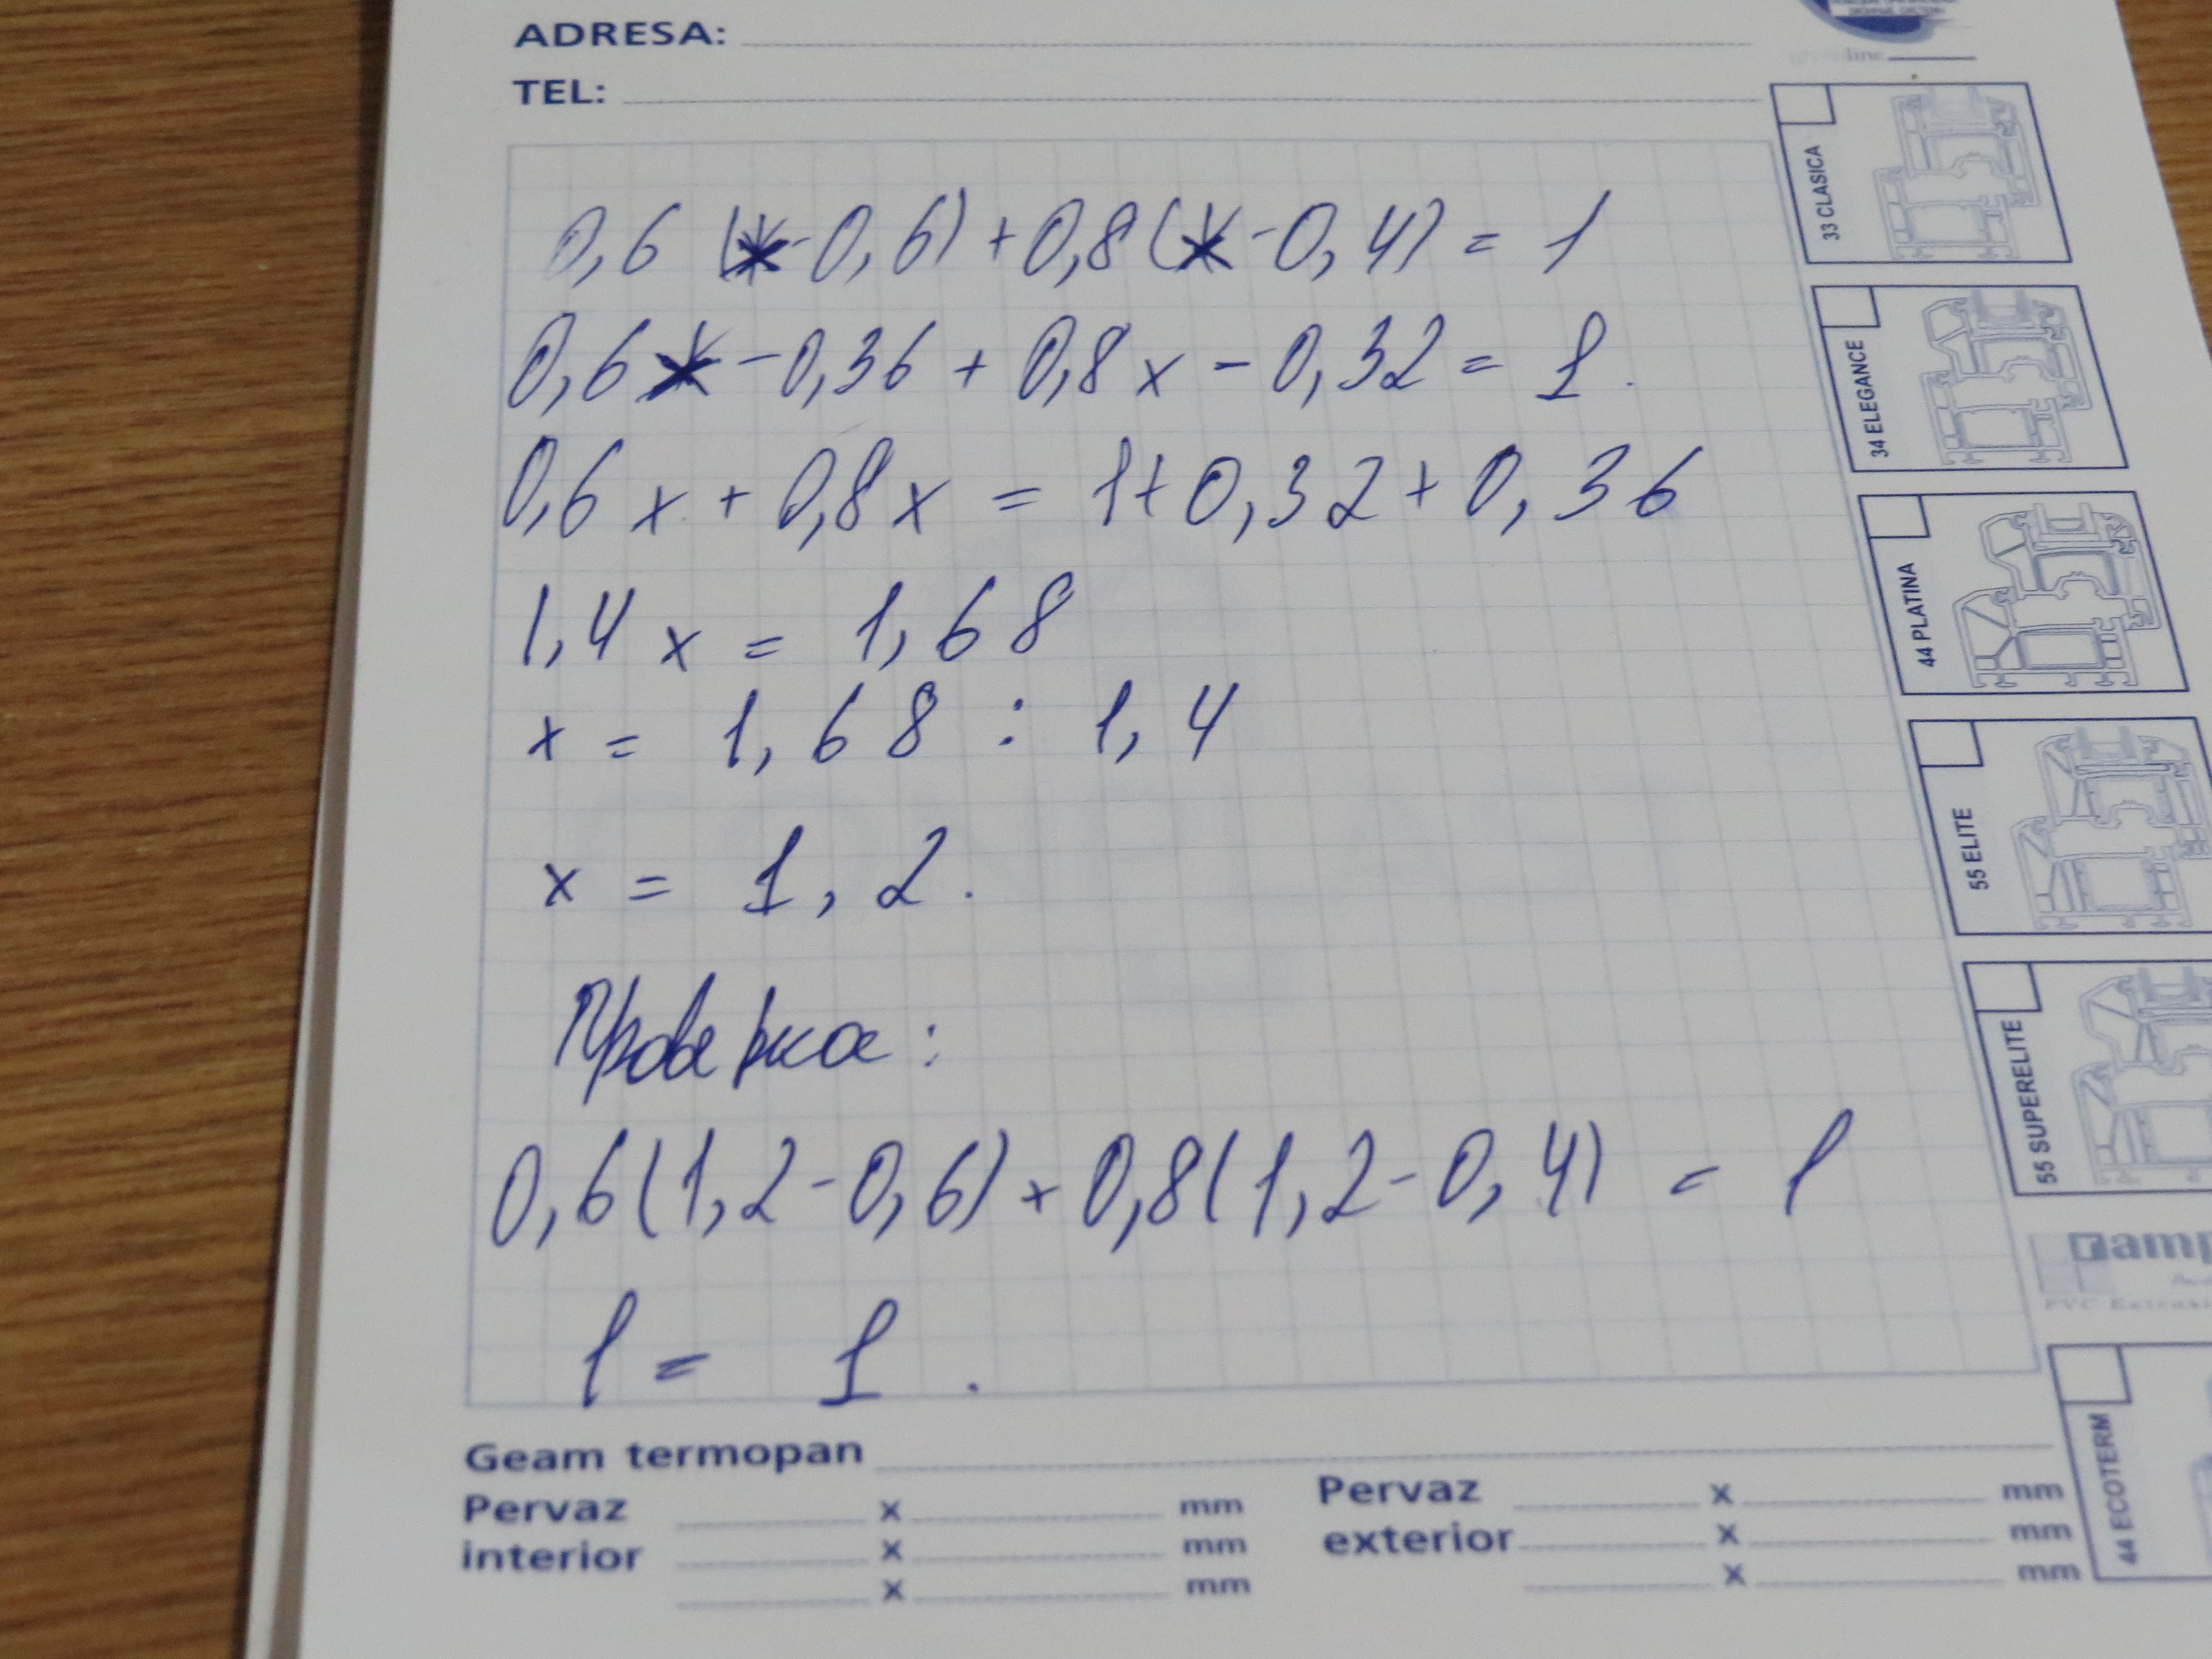 ADRESA:
TEL:
0,6 (x-0,6)+0,8(x-0,4) = 1
0,6x-0,36+0,8x-0,32= 1.
0,6x+0,8x = 1+0,32+0,36
1,4x = 1,68
x = 1,68 : 1,4
x = 1,2.
Проверка:
0,6(1,2-0,6)+0,8(1,2-0,4) = 1
1 = 1.
33 CLASICA
34 ELEGANCE
44 PLATINA
55 ELITE
55 SUPERELITE
44 ECOTERM
Geam termopan
Pervaz x mm
interior x mm
x mm
Pervaz x mm
exterior x mm
x mm